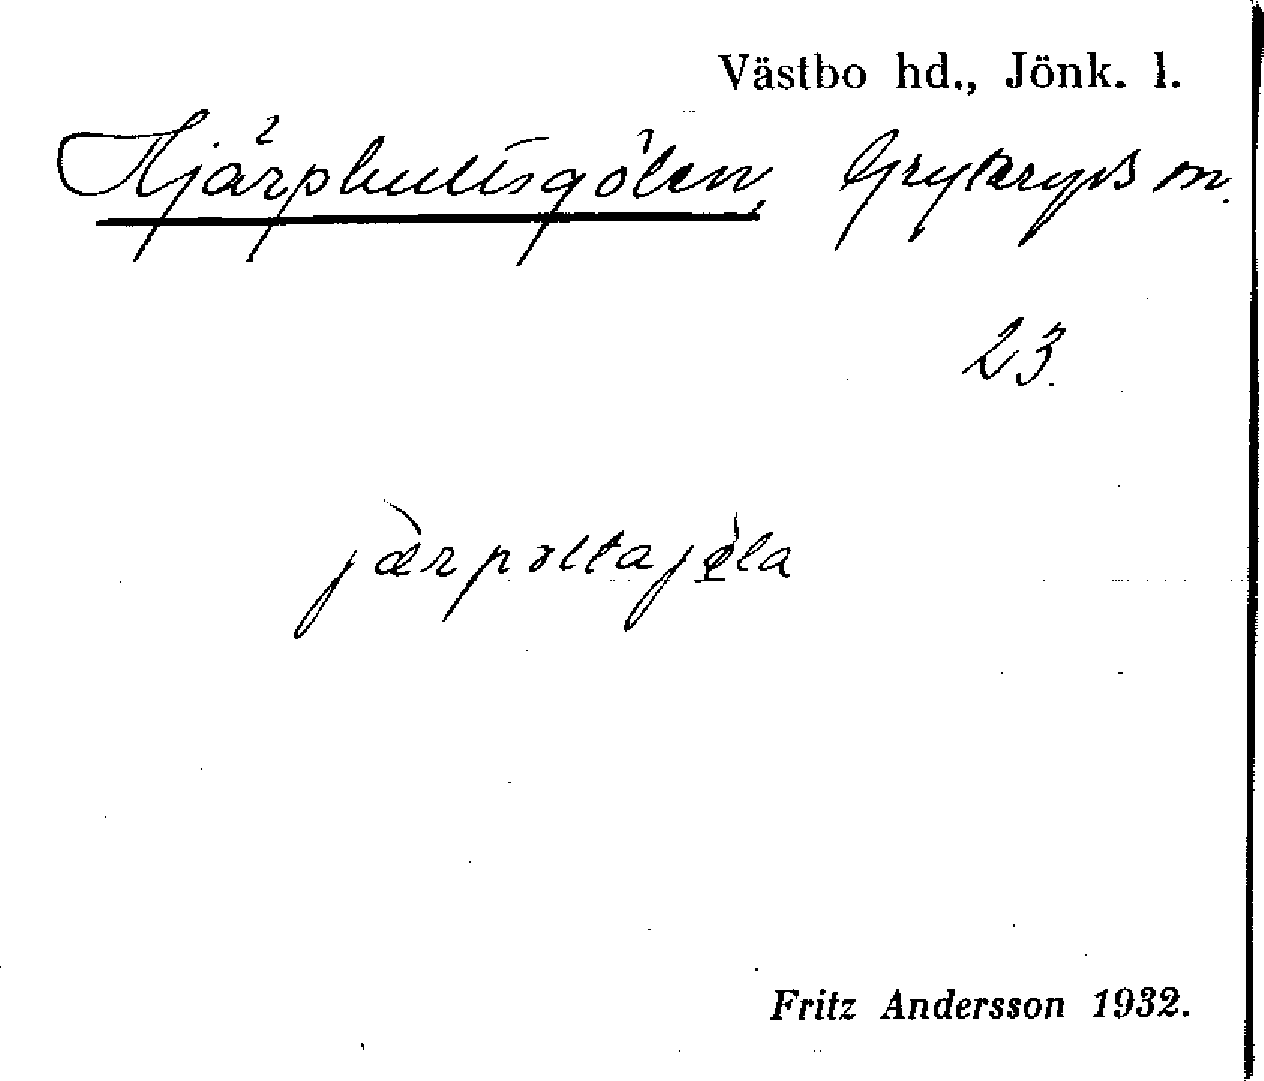 Västbo hd., Jönk. l.
Hjärphultsgölen, Gryteryds m.
23.
jærpoltajøla
Fritz Andersson 1932.